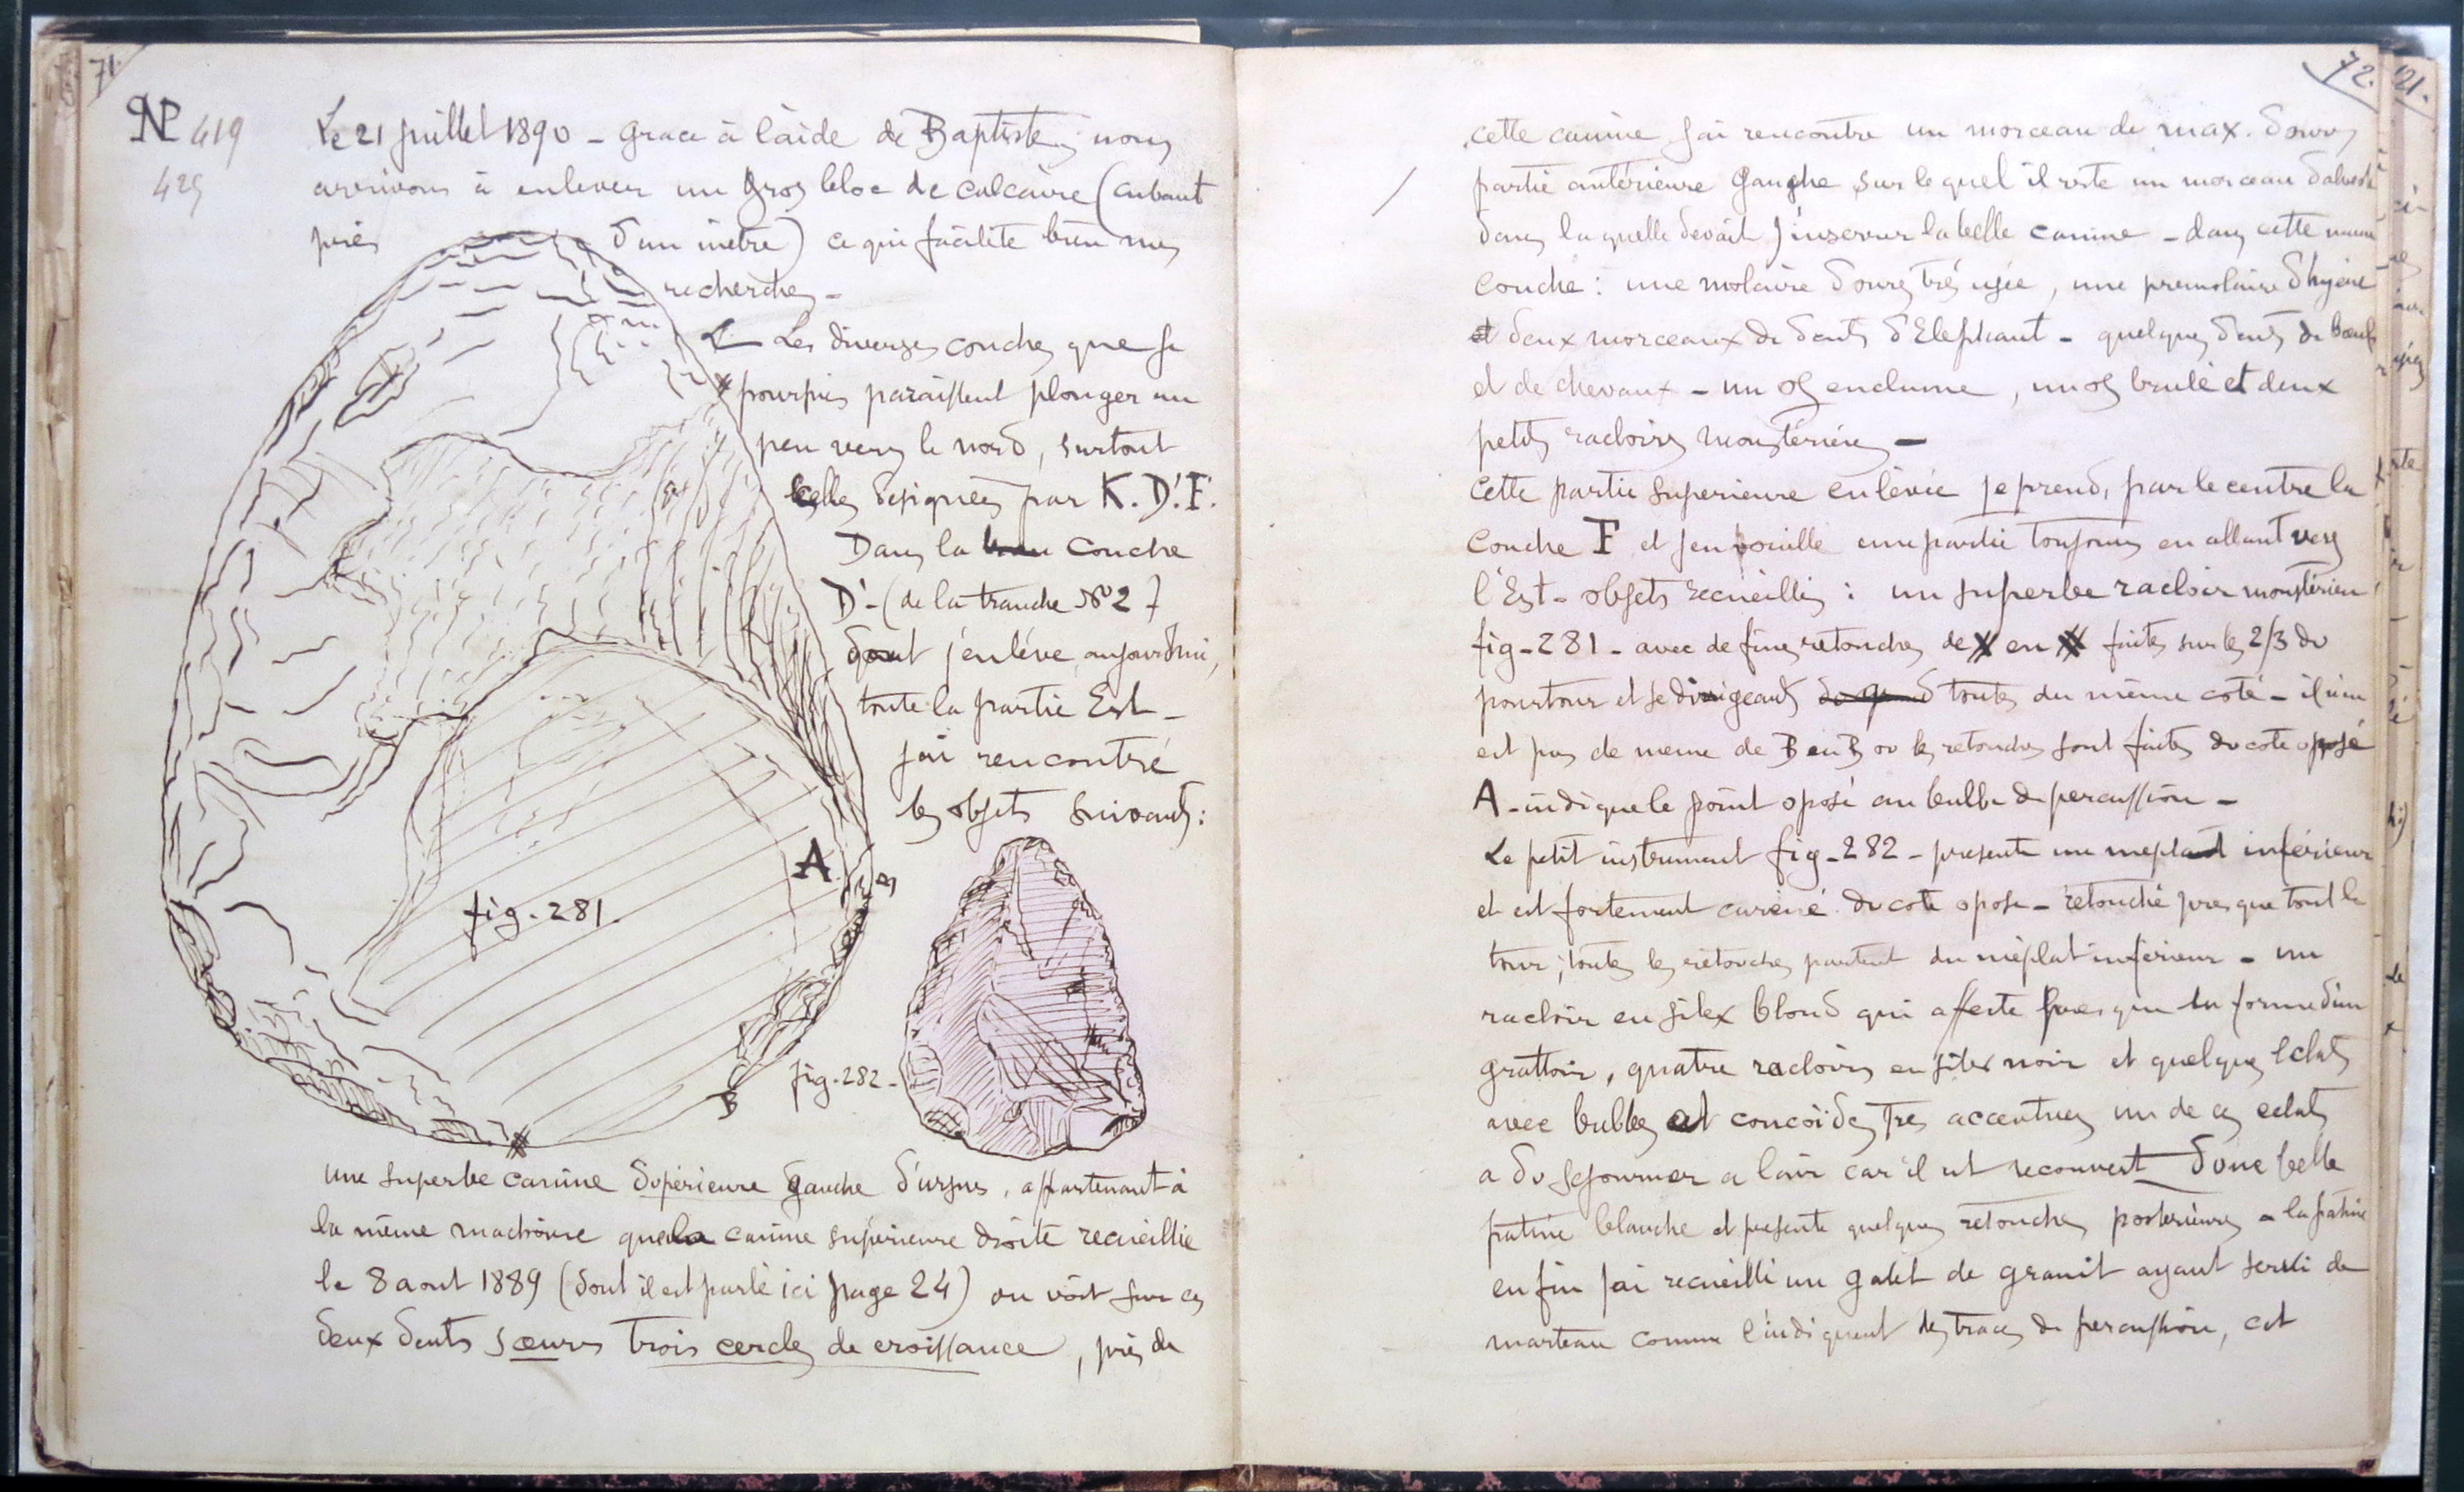 71.
Nº 419
429
Le 21 juillet 1890 - grace à l'aide de Baptiste, nous
arrivons à enlever un gros bloc de calcaire (cubant
près d'un mètre) ce qui facilite bien mes
recherches -
Les diverses couches que je
poursuis paraissent plonger un
peu vers le nord, surtout
celles designées par K. D'. F.
Dans la couche
D' - (de la tranche Nº 2)
dont j'enlève, aujourd'hui,
toute la partie Est -
j'ai rencontré
les objets suivants:
A
B
fig - 281.
fig - 282 -
B
une superbe canine supérieure gauche d'ursus, appartenant à
la même machoire que la canine supérieure droite recueillie
le 8 aout 1889 (dont il est parlé ici page 24) on voit sur ces
deux dents sœurs trois cercles de croissance, près de
72.
cette canine j'ai rencontre un morceau de max. d'ours,
partie antérieure gauche sur lequel il reste un morceau d'alvéole
dans laquelle devait s'inserrer la belle canine - dans cette même
couche : une molaire d'ours très usée, une premolaire d'hyène
et deux morceaux de dents d'Elephant - quelques dents de bœufs
et de chevaux - un os enclume, un os brulé et deux
petits racloirs moustériens -
Cette partie superieure enlevée je prend, par le centre la
couche F et j'en fouille une partie toujours en allant vers
l'Est - objets recueillis : un superbe racloir moustérien
fig - 281 - avec de fines retouches de X en # faites sur les 2/3 du
pourtour et se dirigeant toutes du même coté - il n'en
est pas de meme de B en B ou les retouches sont faites du cote opposé
A - indique le point oposé au bulbe de percussion -
Le petit instrument fig - 282 - presente un meplat inférieur
et est fortement caréné du cote oposé - retouché presque tout le
tour ; toutes les retouches partent du méplat inférieur - un
racloir en silex blond qui affecte presque la forme d'un
grattoir, quatre racloirs en silex noir et quelques éclats
avec bulbes et concoïdes très accentués un de ces eclats
a du sejourner a l'air car il est recouvert d'une belle
patine blanche et presente quelques retouches posterieures a la patine
enfin j'ai recueilli un galet de granit ayant servi de
marteau comme l'indiquent des traces de percussion, cet
121.